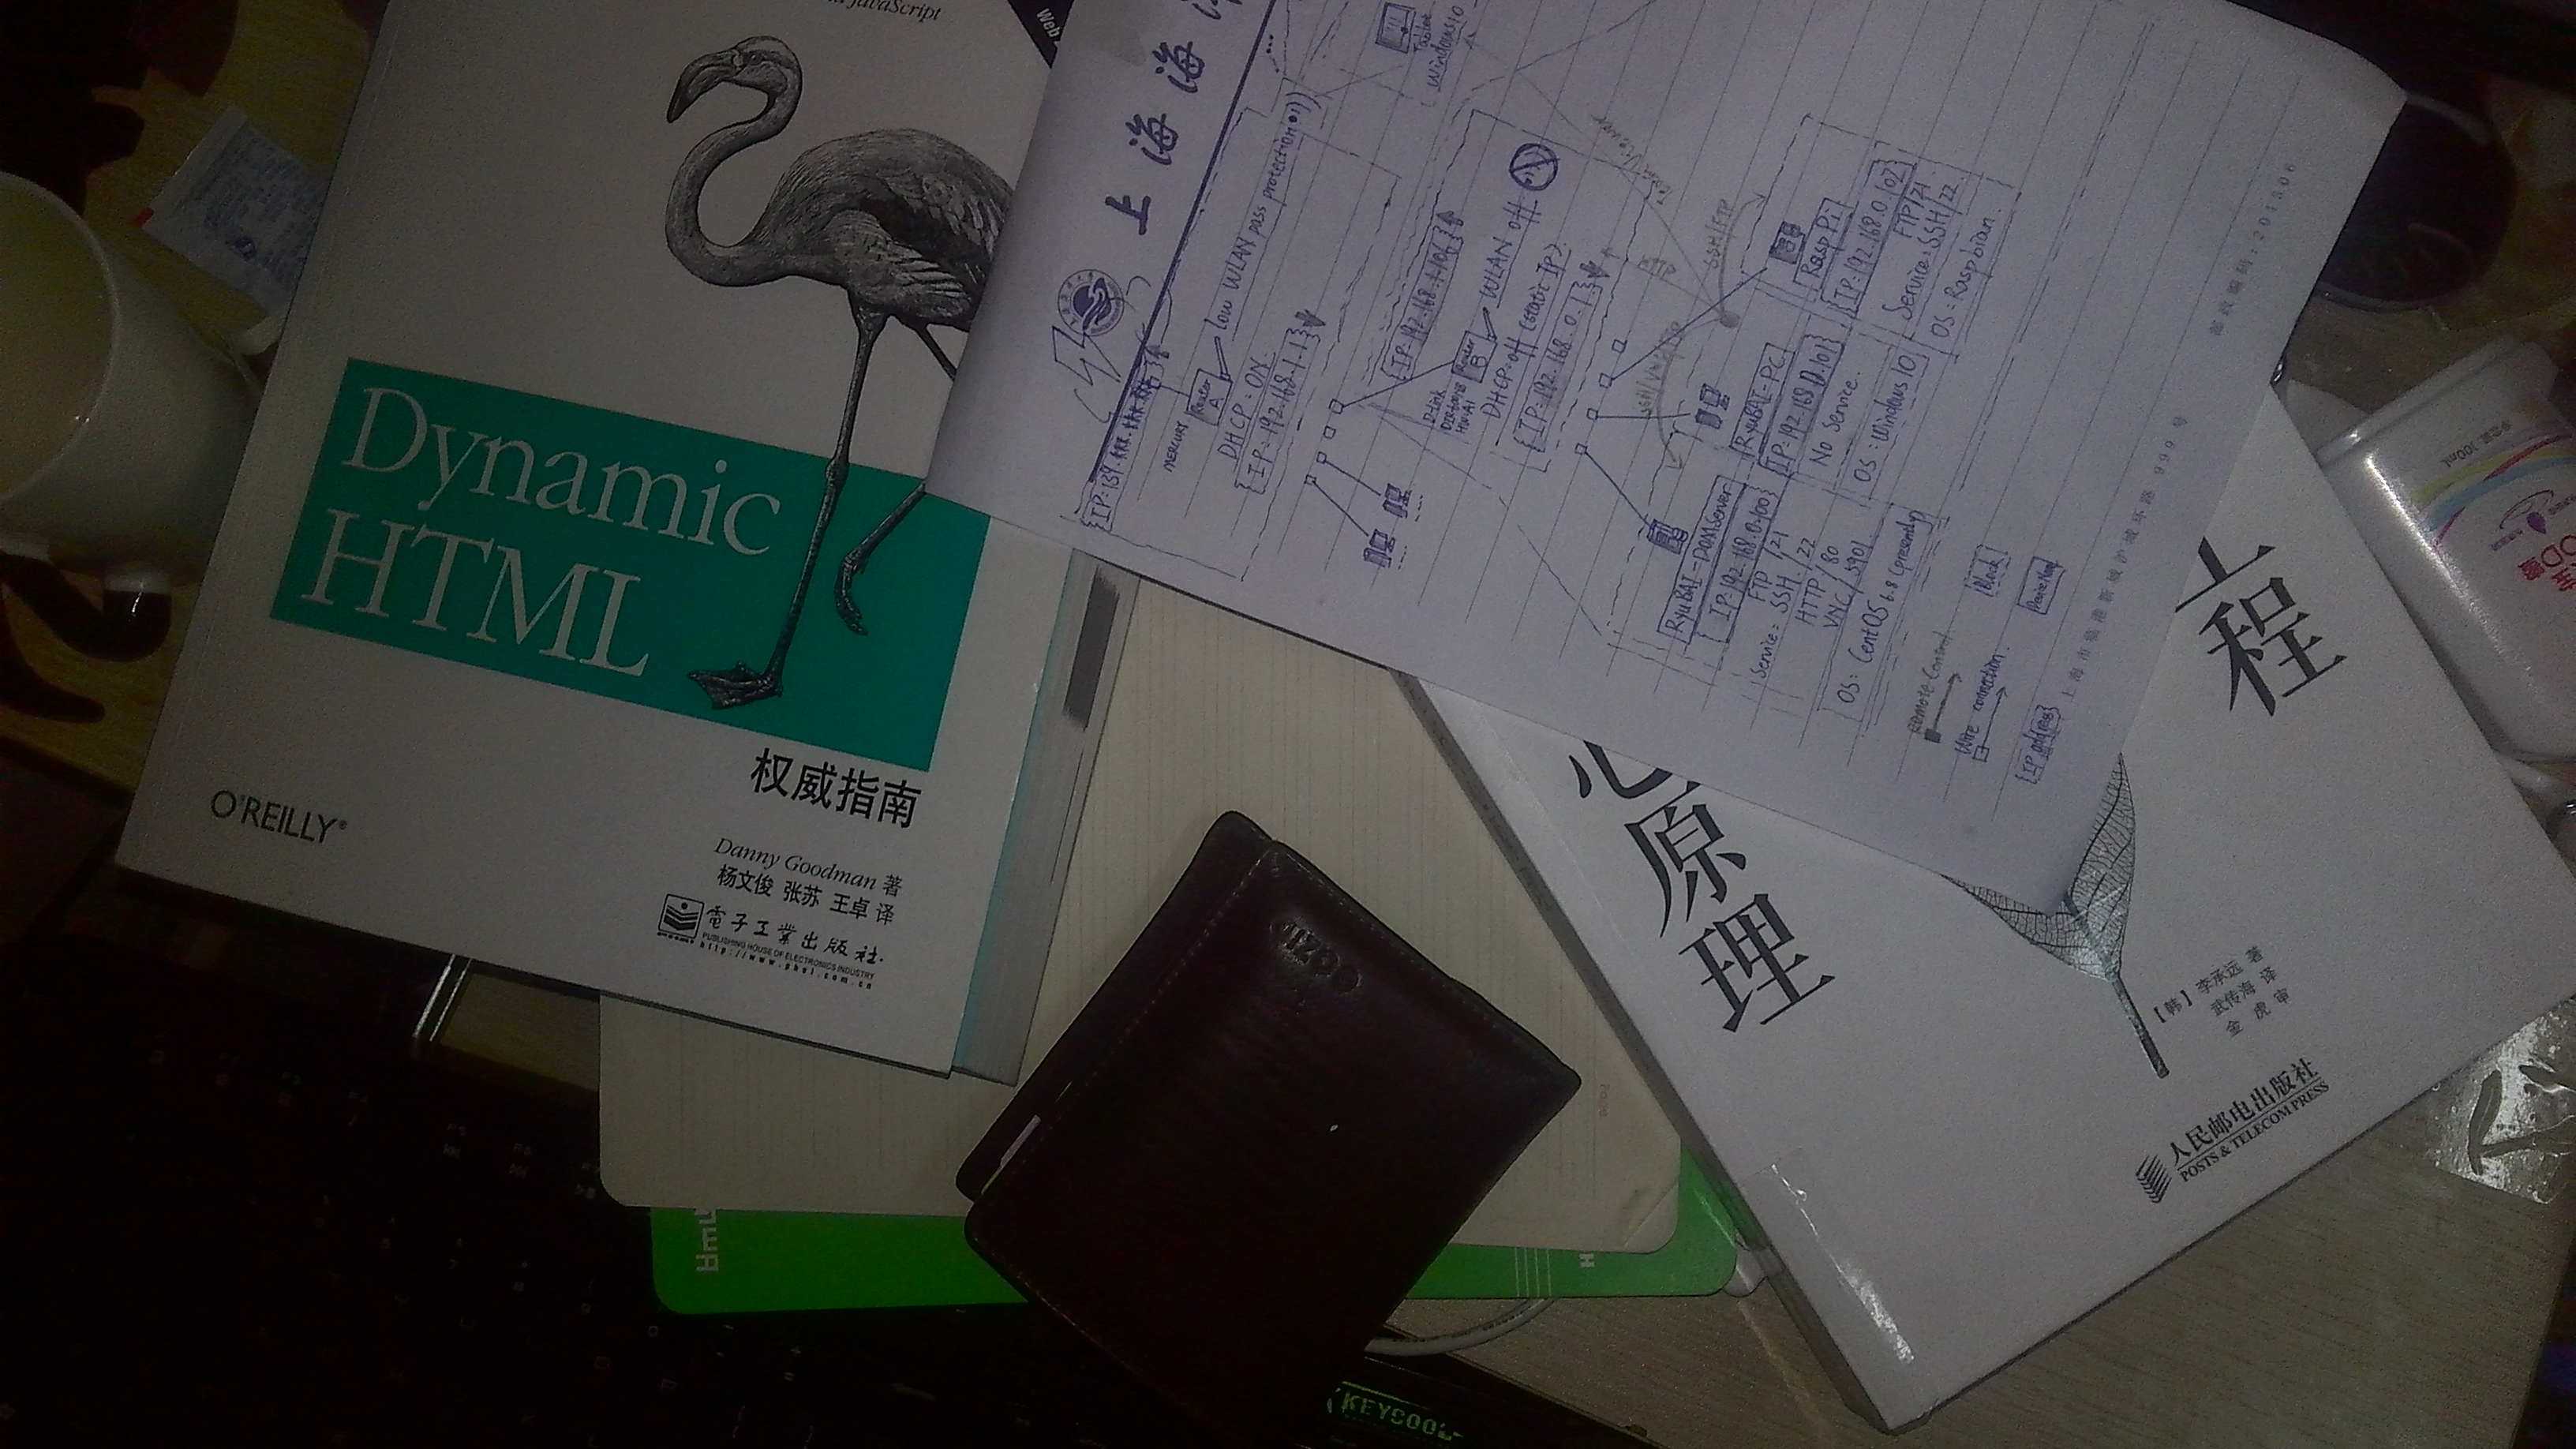 O'REILLY®
Dynamic
HTML
权威指南
Danny Goodman 著
杨文俊 张苏 王卓 译
电子工业出版社.
PUBLISHING HOUSE OF ELECTRONICS INDUSTRY
JavaScript
Web
上海海
IP: 139.***.***.***
MERCURY
Router
A
low WLAN pass protection
DHCP: ON.
IP: 192.168.1.1
IP: 192.168.1.106
D-Link
Router
B
WLAN off
DHCP: off (static IP).
IP: 192.168.0.1
Tablet
Windows10
TeamViewer
HTTP
SSH/VNC/FTP
SSH/FTP
RyuBAI-DOMServer
IP: 192.168.0.100
Service: FTP /21
SSH /22
HTTP /80
VNC /5901
OS: CentOS 6.8 (presently)
RyuBAI-PC
IP: 192.168.0.101
No Service.
OS: Windows10
Rasp Pi
IP: 192.168.0.102
Service: FTP/21
SSH/22
OS: Raspbian.
Remote Control
Wire connection.
Block
IP address
Device Name
上海市临港新城沪城环路 999 号
邮政编码: 201306
KEYCOOL
Page
心原理
程
[韩] 李承远 著
武传海 译
金虎 审
人民邮电出版社
POSTS & TELECOM PRESS